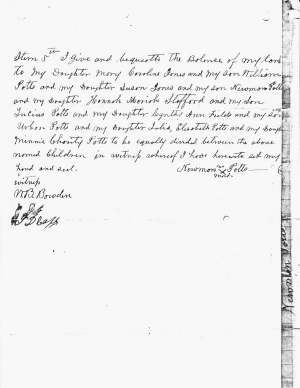 Item 5th I Give and bequeoth the Bolance of my land
to My Doughter Mary Caroline Jones and My son William
Potts and my Doughter Susan Jones and my son Newmon Potts
and my Doughter Honnoh Moriah Stofford and my Son
Lucius Potts and my Doughter Cynthi Ann Fields and my Son
Urbon Potts and my Doughter Julia, Elizabeth Potts and my Doughter
Minnie Chority Potts to be equolly divided between the obove
nomed Children in witness whereof I have hereunto set my
hond and seol. Newmon his X mark Potts
witness
W.R. Bowden